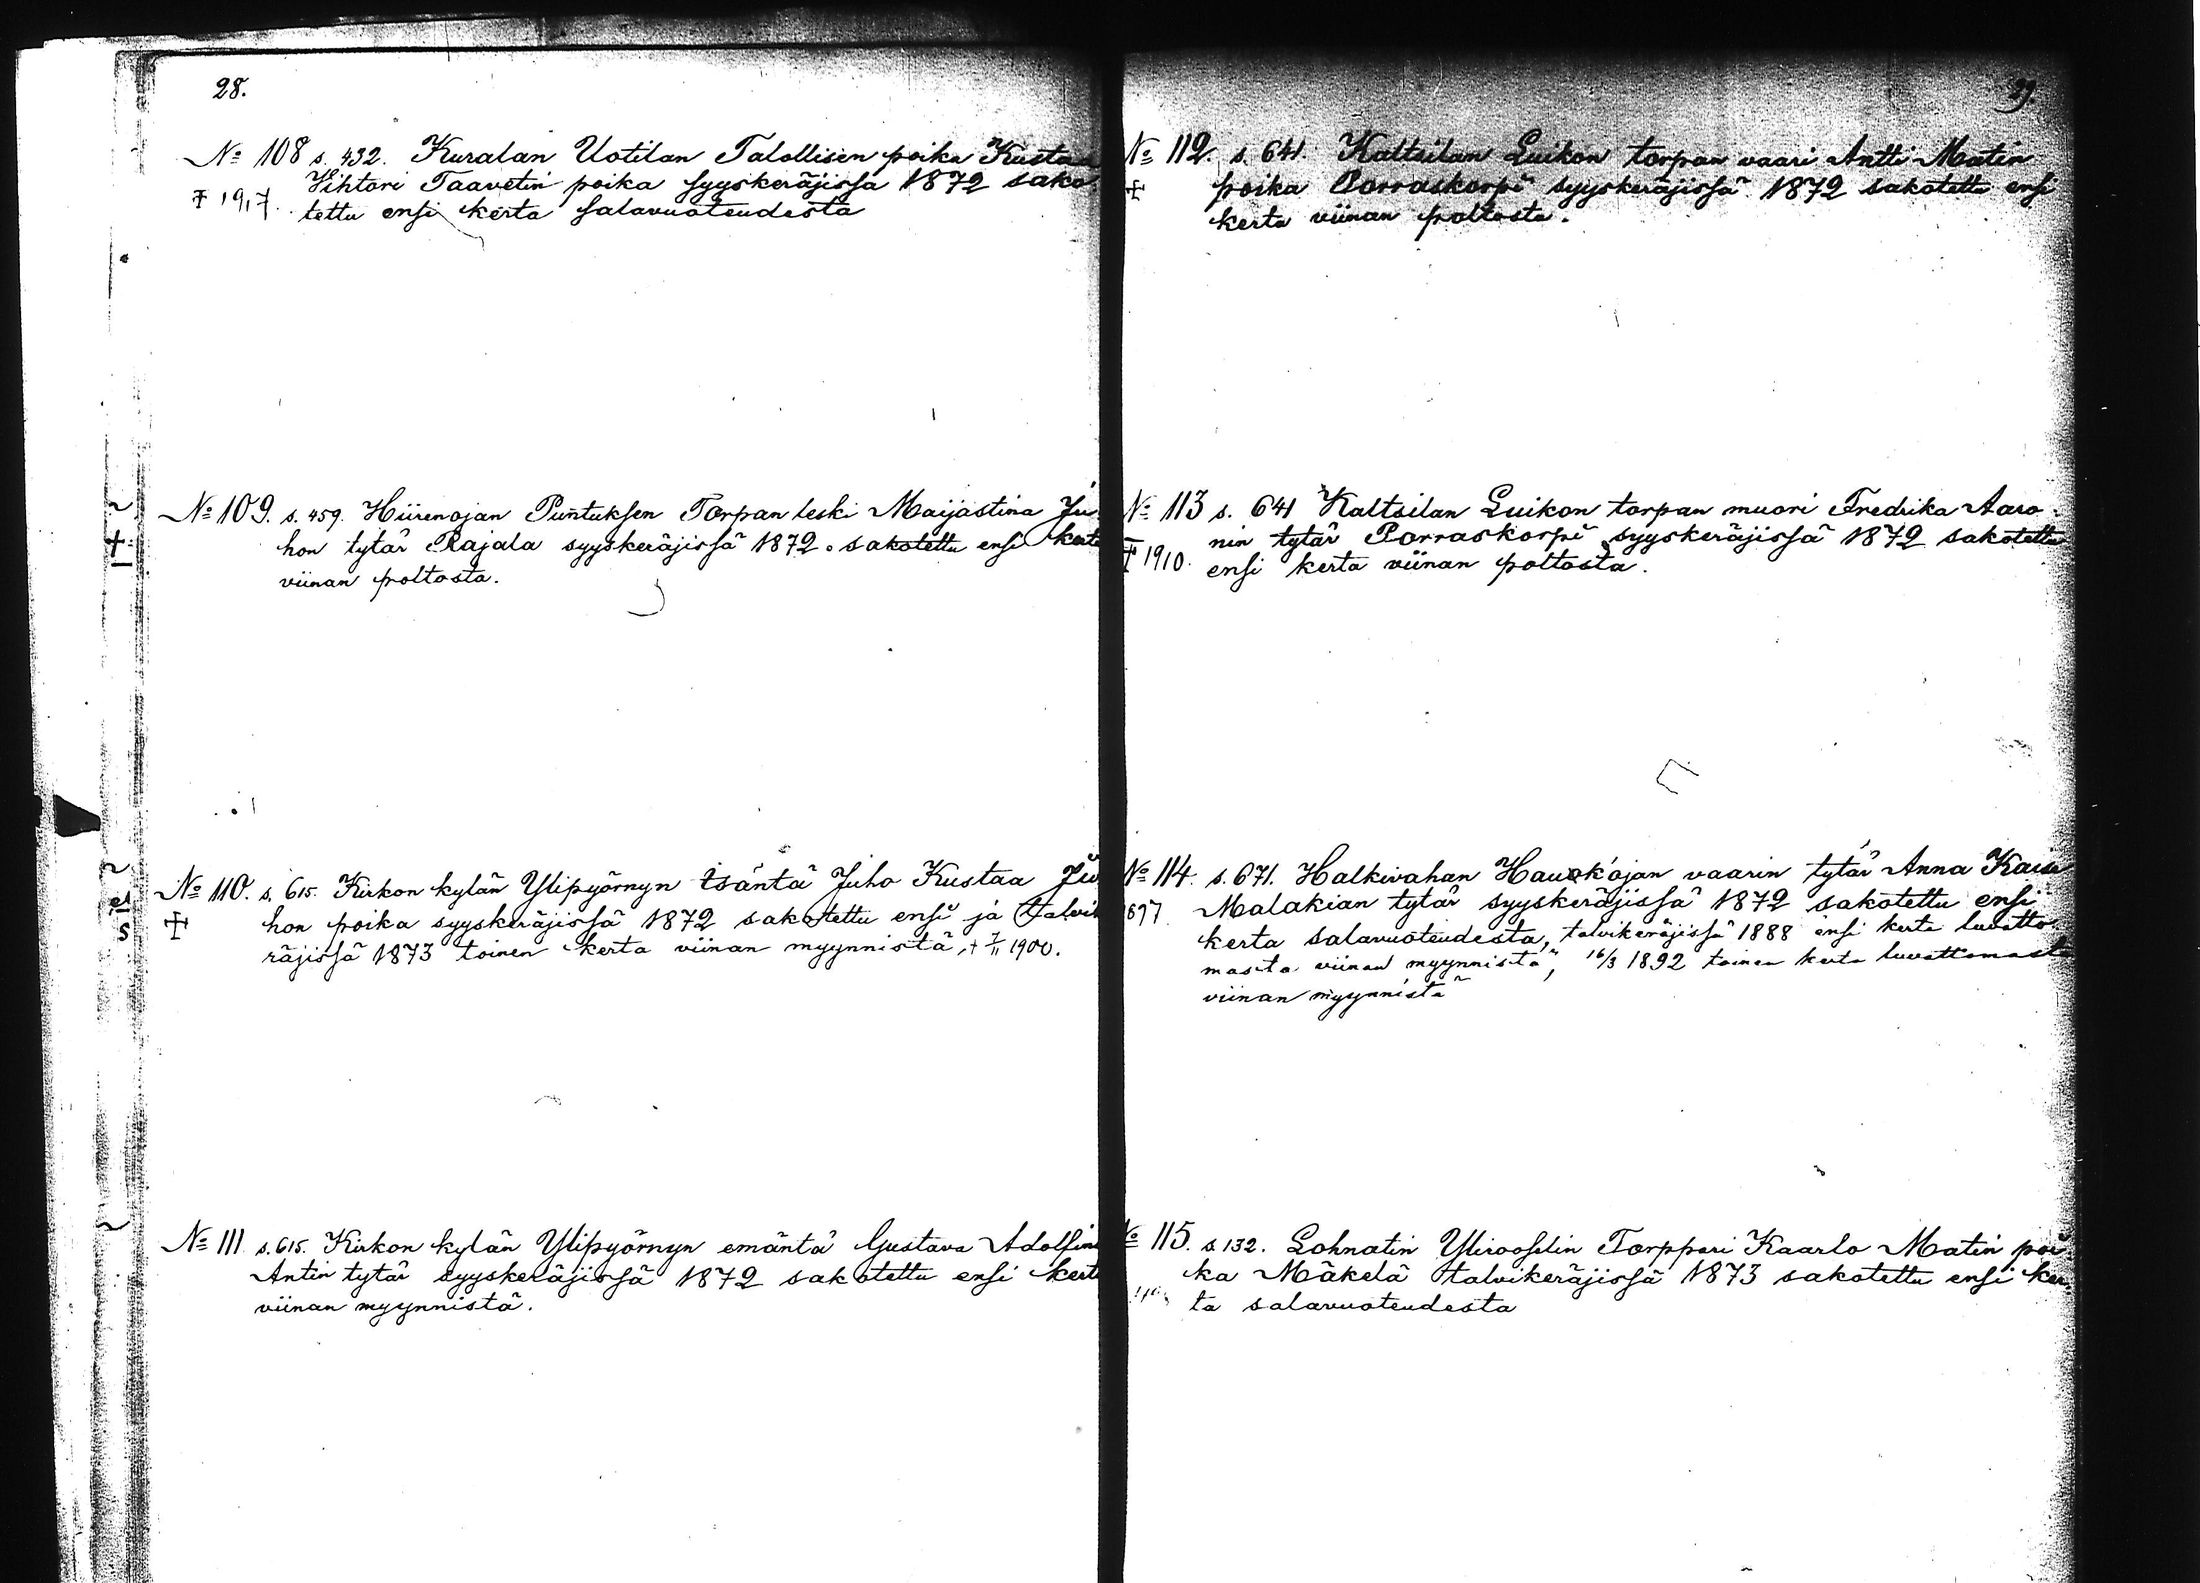 28.
№ 108 s. 432. Kuralan Uotilan Talollisen poika Kustaa
Vihtori Taavetin poika syyskeräjissä 1872 sako-
† 1917. tettu ensi kerta salavuoteudesta
№ 109. s. 459. Hiirenojan Puntuksen Torpan leski Maijastina Ju
hon tytär Rajala syyskeräjissä 1872. sakotettu ensi kerta
viinan poltosta.
№ 110. s. 615. Kirkon kylän Ylipyörnyn isäntä Juho Kustaa Ju
† hon poika syyskeräjissä 1872 sakotettu ensi ja talvik
räjissä 1873 toinen kerta viinan myynnistä, † 7/II 1900.
№ 111. s. 615. Kirkon kylän Ylipyörnyn emäntä Gustava Adolfina
Antin tytär syyskeräjissä 1872 sakotettu ensi kerta
viinan myynnistä.
29.
№ 112. s. 641. Kaltsilan Luikon torpan vaari Antti Matin
† poika Porraskorpi syyskeräjissä 1872 sakotettu ensi
kerta viinan poltosta.
№ 113 s. 641 Kaltsilan Luikon torpan muori Fredrika Aaro-
nin tytär Porraskorpi syyskeräjissä 1872 sakotettu
† 1910. ensi kerta viinan poltosta.
№ 114. s. 671. Halkivahan Haukkojan vaarin tytär Anna Kaisa
697 Malakian tytär syyskeräjissä 1872 sakotettu ensi
kerta salavuoteudesta, talvikeräjissä 1888 ensi kerta luvatto-
masta viinan myynnistä, 16/3 1892 toinen kerta luvattomasta
viinan myynnistä
№ 115. s. 132. Lohnatin Yliroosilin Torppari Kaarlo Matin poi
ka Mäkelä talvikeräjissä 1873 sakotettu ensi ker-
ta salavuoteudesta